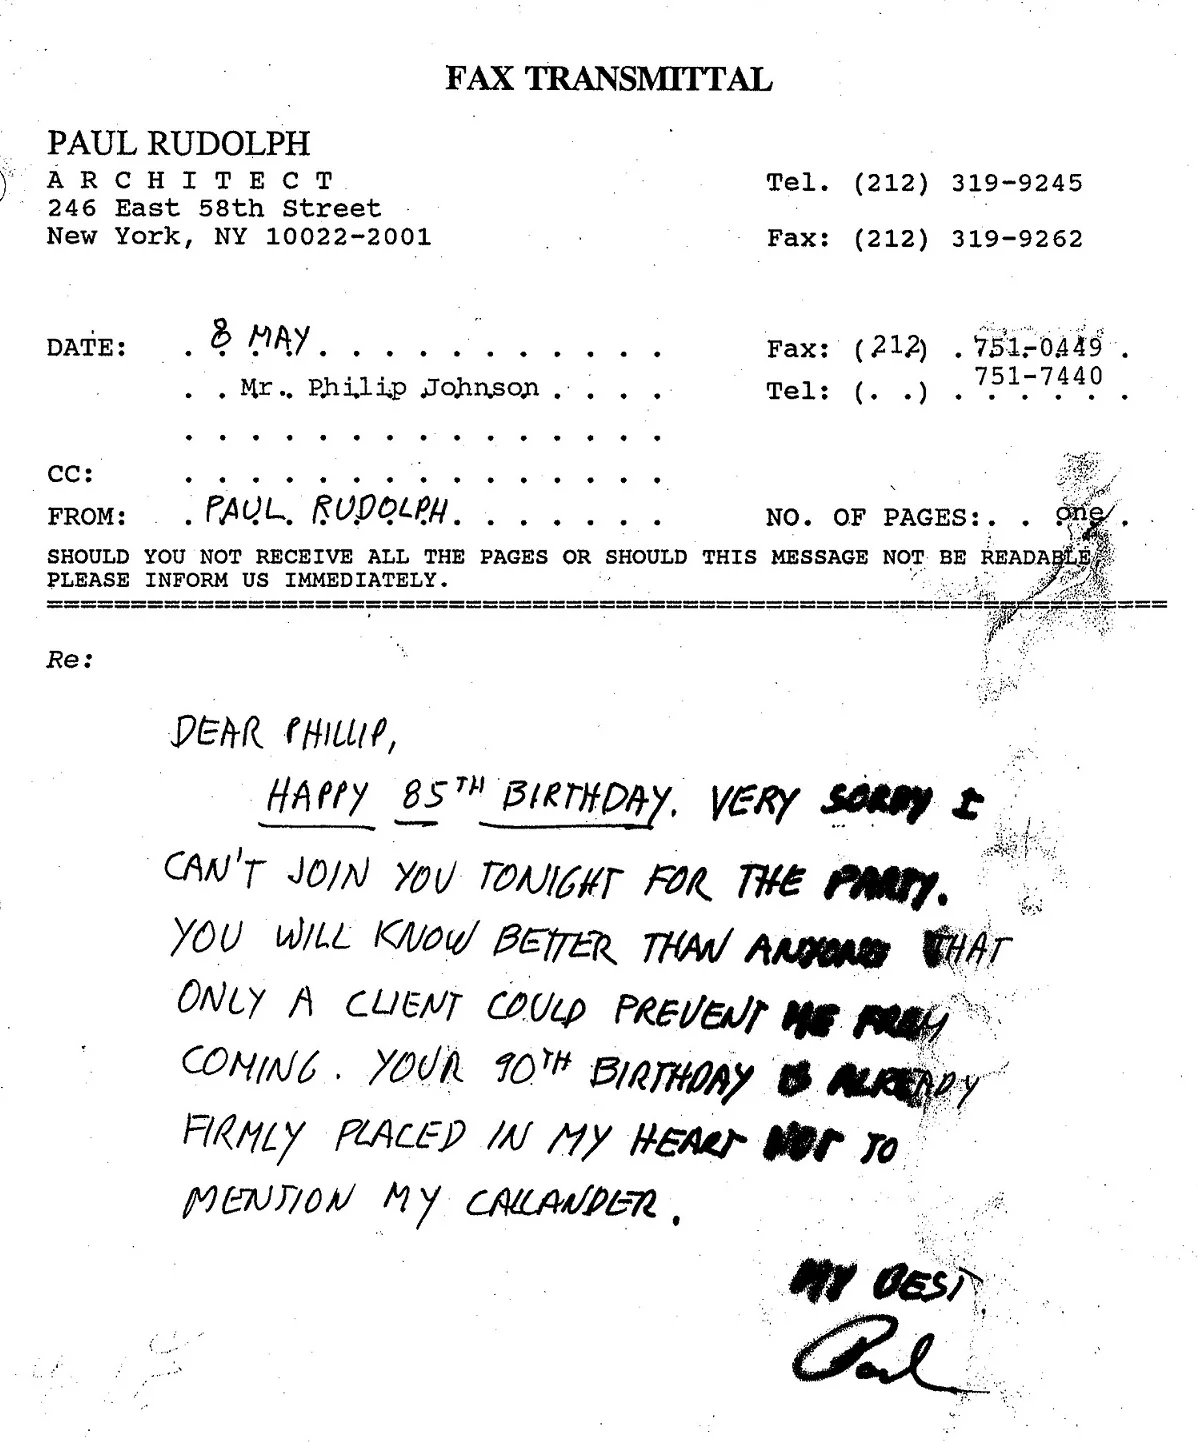 FAX TRANSMITTAL
PAUL RUDOLPH
ARCHITECT
246 East 58th Street
New York, NY 10022-2001
Tel. (212) 319-9245
Fax: (212) 319-9262
DATE: 8 MAY
Fax: (212) 751-0449
Mr. Philip Johnson
Tel: ( ) 751-7440
CC:
FROM: PAUL RUDOLPH
NO. OF PAGES: one
SHOULD YOU NOT RECEIVE ALL THE PAGES OR SHOULD THIS MESSAGE NOT BE READABLE,
PLEASE INFORM US IMMEDIATELY.
Re:
DEAR PHILLIP,
HAPPY 85TH BIRTHDAY. VERY SORRY I
CAN'T JOIN YOU TONIGHT FOR THE PARTY.
YOU WILL KNOW BETTER THAN ANYONE THAT
ONLY A CLIENT COULD PREVENT ME FROM
COMING. YOUR 90TH BIRTHDAY IS ALREADY
FIRMLY PLACED IN MY HEART NOT TO
MENTION MY CALLANDER.
MY BEST,
Paul